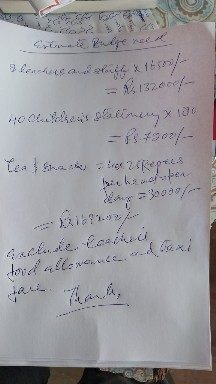 Estimate Budge need
8 teachers and staff x 16500/-
= Rs 132000/-
40 Children's stationery x 180
= Rs 7200/-
Tea & Snacks = 40 x 25 Rupees
per head per
days = 30000/-
= Rs 169200/-
exclude teachers
food allowance and taxi
fare.
Thanks,